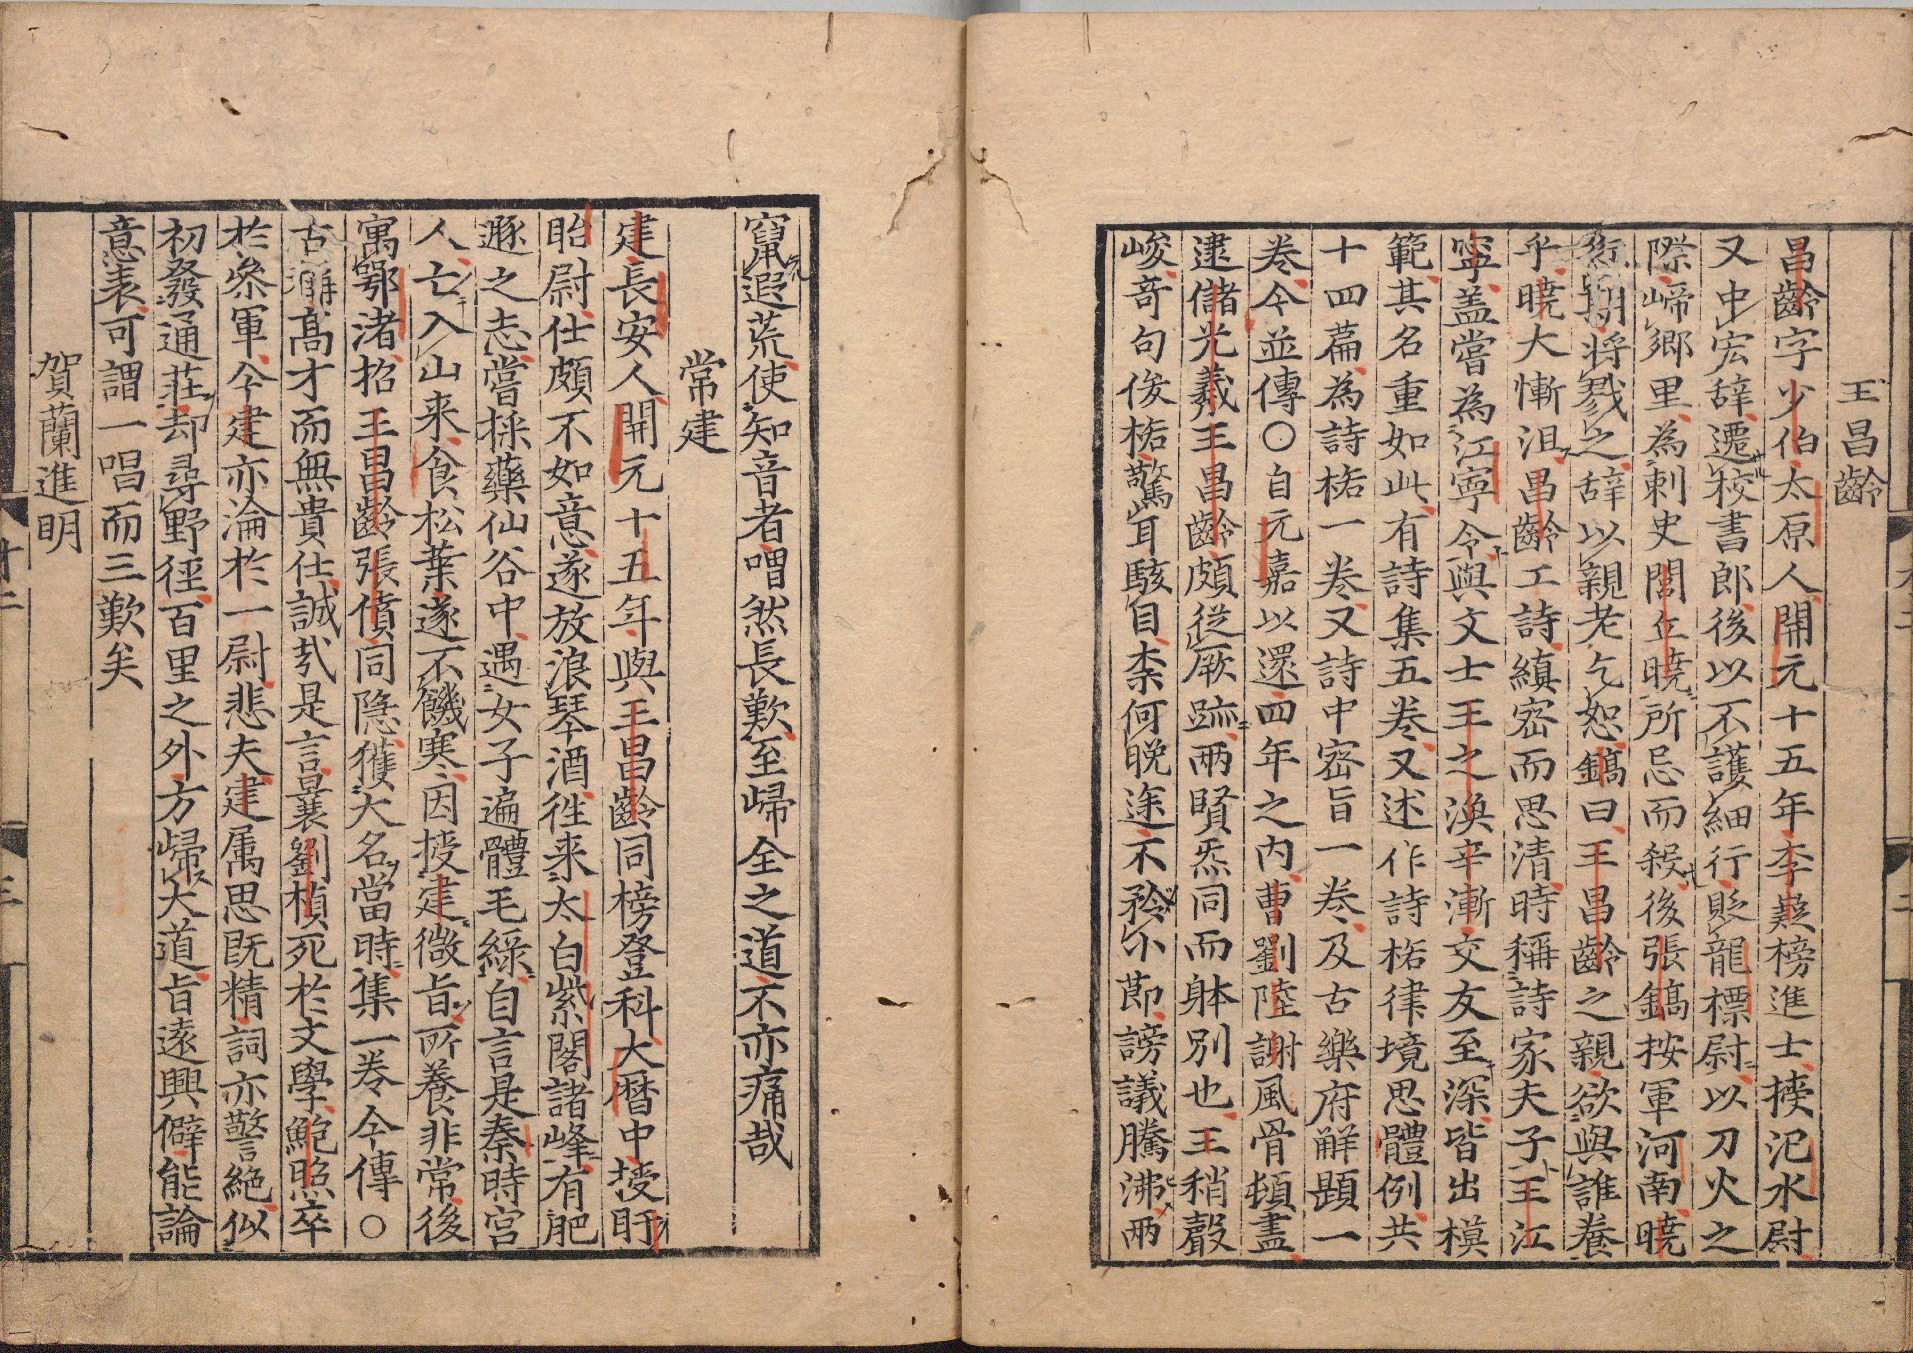 王昌齡
昌齡字少伯太原人開元十五年李嶷榜進士授汜水尉
又中宏辞遷校書郎後以不護細行貶龍標尉以刀火之
際歸鄉里為刺史閭丘曉所忌而殺後張鎬按軍河南曉
愆期将戮之辞以親老乞恕鎬曰王昌齡之親欲與誰養
乎曉大慚沮昌齡工詩縝密而思清時稱詩家夫子王江
寧盖嘗為江寧令與文士王之渙辛漸交友至深皆出模
範其名重如此有詩集五巻又述作詩格律境思體例共
十四篇為詩格一巻又詩中密旨一巻及古樂府解題一
巻今並傳○自元嘉以還四年之内曹劉陸謝風骨頓盡
逮儲光羲王昌齡頗從厥跡兩賢炁同而躰別也王稍聲
峻竒句俊格驚耳駭目柰何晚途不矜小莭謗議騰沸兩
竄遐荒使知音者喟然長歎至歸全之道不亦痛哉
常建
建長安人開元十五年與王昌齡同榜登科大曆中授盱
眙尉仕頗不如意遂放浪琴酒徃来太白紫閣諸峰有肥
遯之志嘗採藥仙谷中遇女子遍體毛綠自言是秦時宮
人亡入山来食松葉遂不饑寒因授建微旨所養非常後
寓鄂渚招王昌齡張僨同隠獲大名當時集一巻今傳○
古稱髙才而無貴仕誠㢤是言曩劉楨死於文學鮑照卒
於叅軍今建亦淪於一尉悲夫建属思既精詞亦警絶似
初發通莊却尋野徑百里之外方歸大道旨遠興僻能論
意表可謂一唱而三歎矣
賀蘭進明